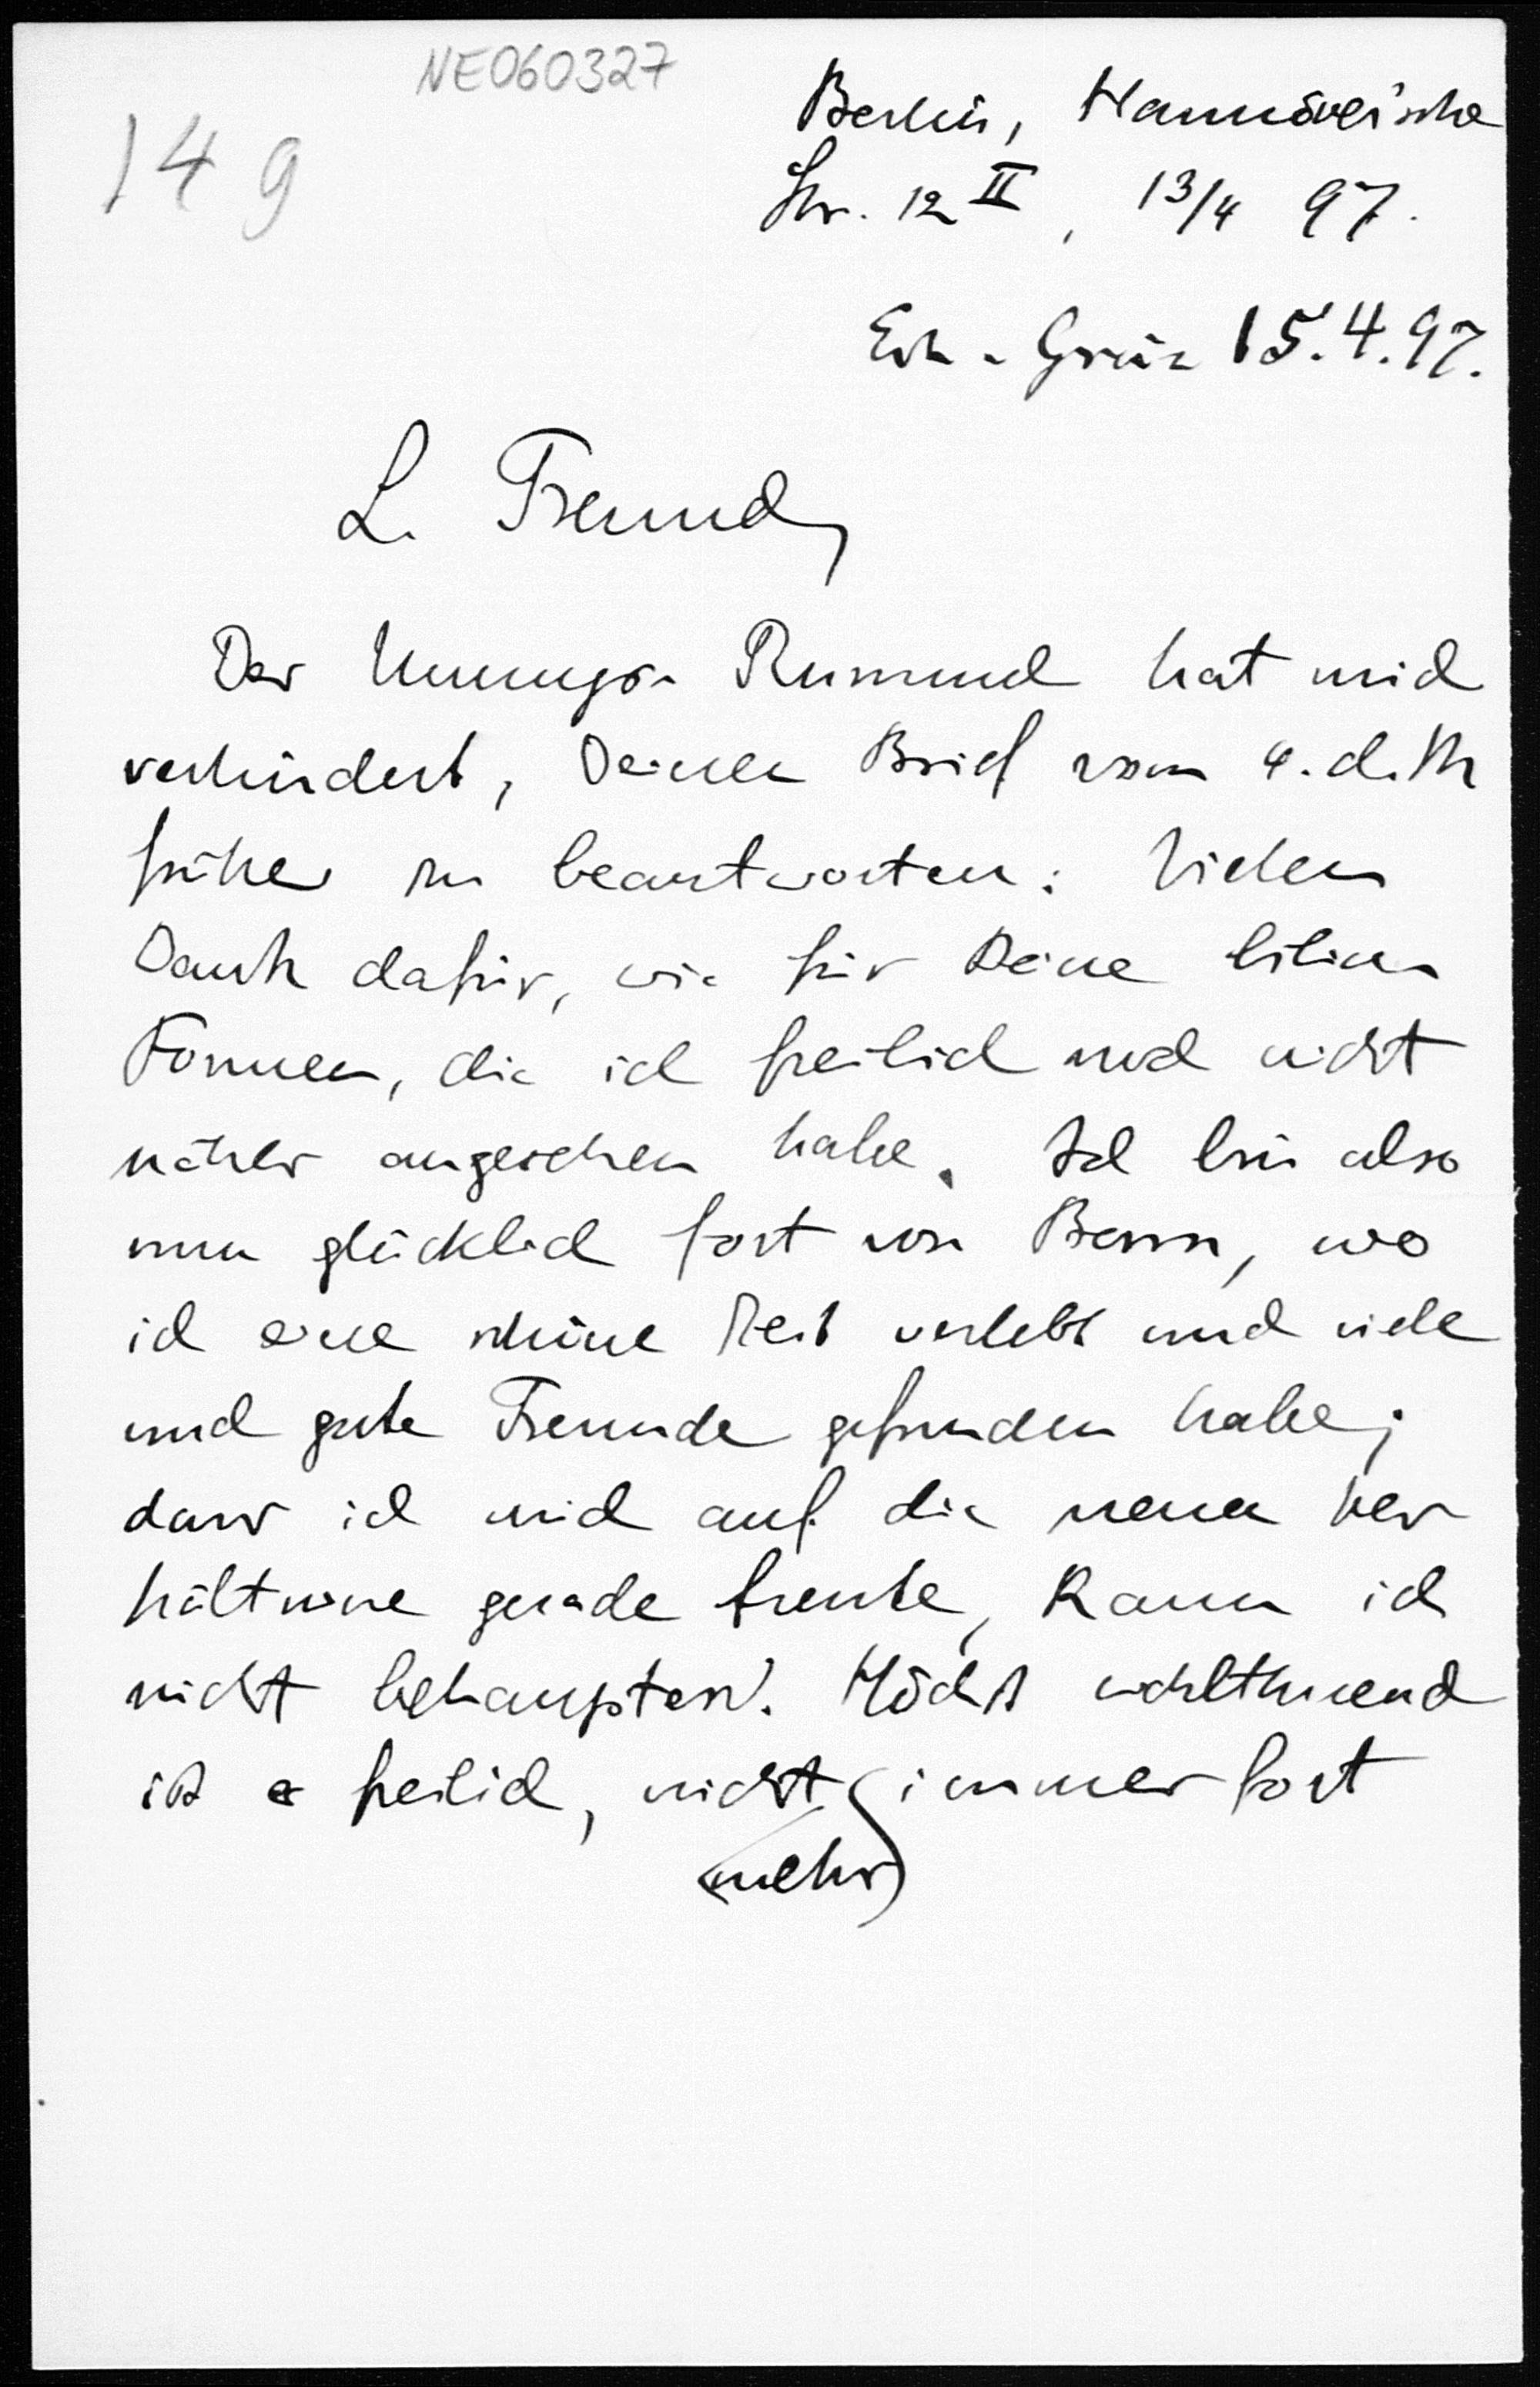 NE060327
149
Berlin, Hannöverische
Str. 12 II, 13/4 97.
Grüz 15.4.97.
L. Freund,
Der Umzugs- Rummel hat mich
verhindert, Deinen Brief vom 4. d. M
früher zu beantworten: Vielen
Dank dafür, wie für Deine
Formen, die ich freilich noch nicht
näher angesehen habe. Ich bin also
nun glücklich fort von Bonn, wo
ich eine schöne Zeit verlebt und viele
und gute Freunde gefunden habe;
dass ich mich auf die neuen Ver
hältnisse gerade freute, kann ich
nicht behaupten. Höchst wohlthuend
ist es freilich, nicht immerfort
mehr